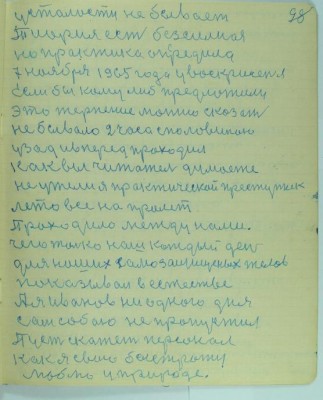 98
усталости не бывает
Теория ест безсилная
но практика определила
7 ноября 1965 года у воскрисеня
Если бы кому либ предложили
это терпение можно сказат
не бывало 2 часа с половиною
узад и вперед проходил
Как вы читател думаете
не ужели я практический преступник
лето все на пролет
Проходило между нами.
чего толко наш каждый ден
для наших самозащищеных телов
показывал в естестве
А я Иванов ни одного дня
сам собою не пропустил
Пуст скажет персонал
как я свою быстроту
люблю у природе.